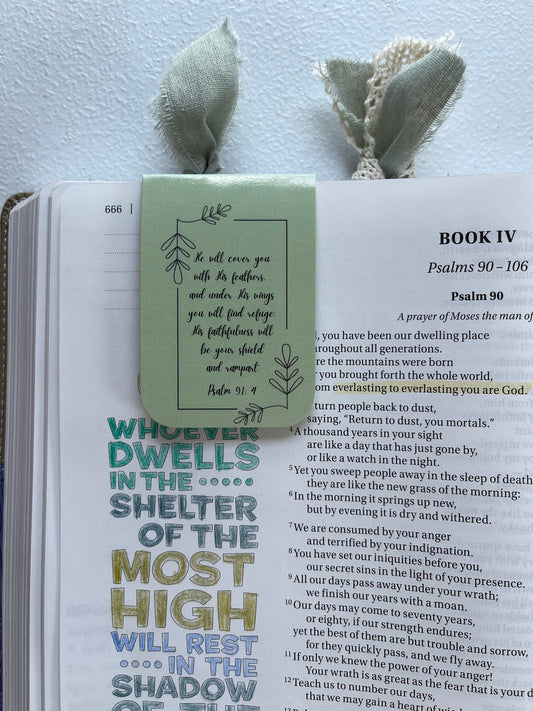 666
He will cover you
with His feathers,
and under His wings
you will find refuge;
His faithfulness will
be your shield
and rampart
Psalm 91: 4
WHOEVER
DWELLS
IN THE
SHELTER
OF THE
MOST
HIGH
WILL REST
IN THE
SHADOW
OF THE
BOOK IV
Psalms 90–106
Psalm 90
A prayer of Moses the man of
you have been our dwelling place
throughout all generations.
the mountains were born
you brought forth the whole world,
everlasting to everlasting you are God.
turn people back to dust,
saying, "Return to dust, you mortals."
4 A thousand years in your sight
are like a day that has just gone by,
or like a watch in the night.
5 Yet you sweep people away in the sleep of death
they are like the new grass of the morning:
6 In the morning it springs up new,
but by evening it is dry and withered.
7 We are consumed by your anger
and terrified by your indignation.
8 You have set our iniquities before you,
our secret sins in the light of your presence.
9 All our days pass away under your wrath;
we finish our years with a moan.
10 Our days may come to seventy years,
or eighty, if our strength endures;
yet the best of them are but trouble and sorrow,
for they quickly pass, and we fly away.
11 If only we knew the power of your anger!
Your wrath is as great as the fear that is your d
12 Teach us to number our days,
that we may gain a heart of wis